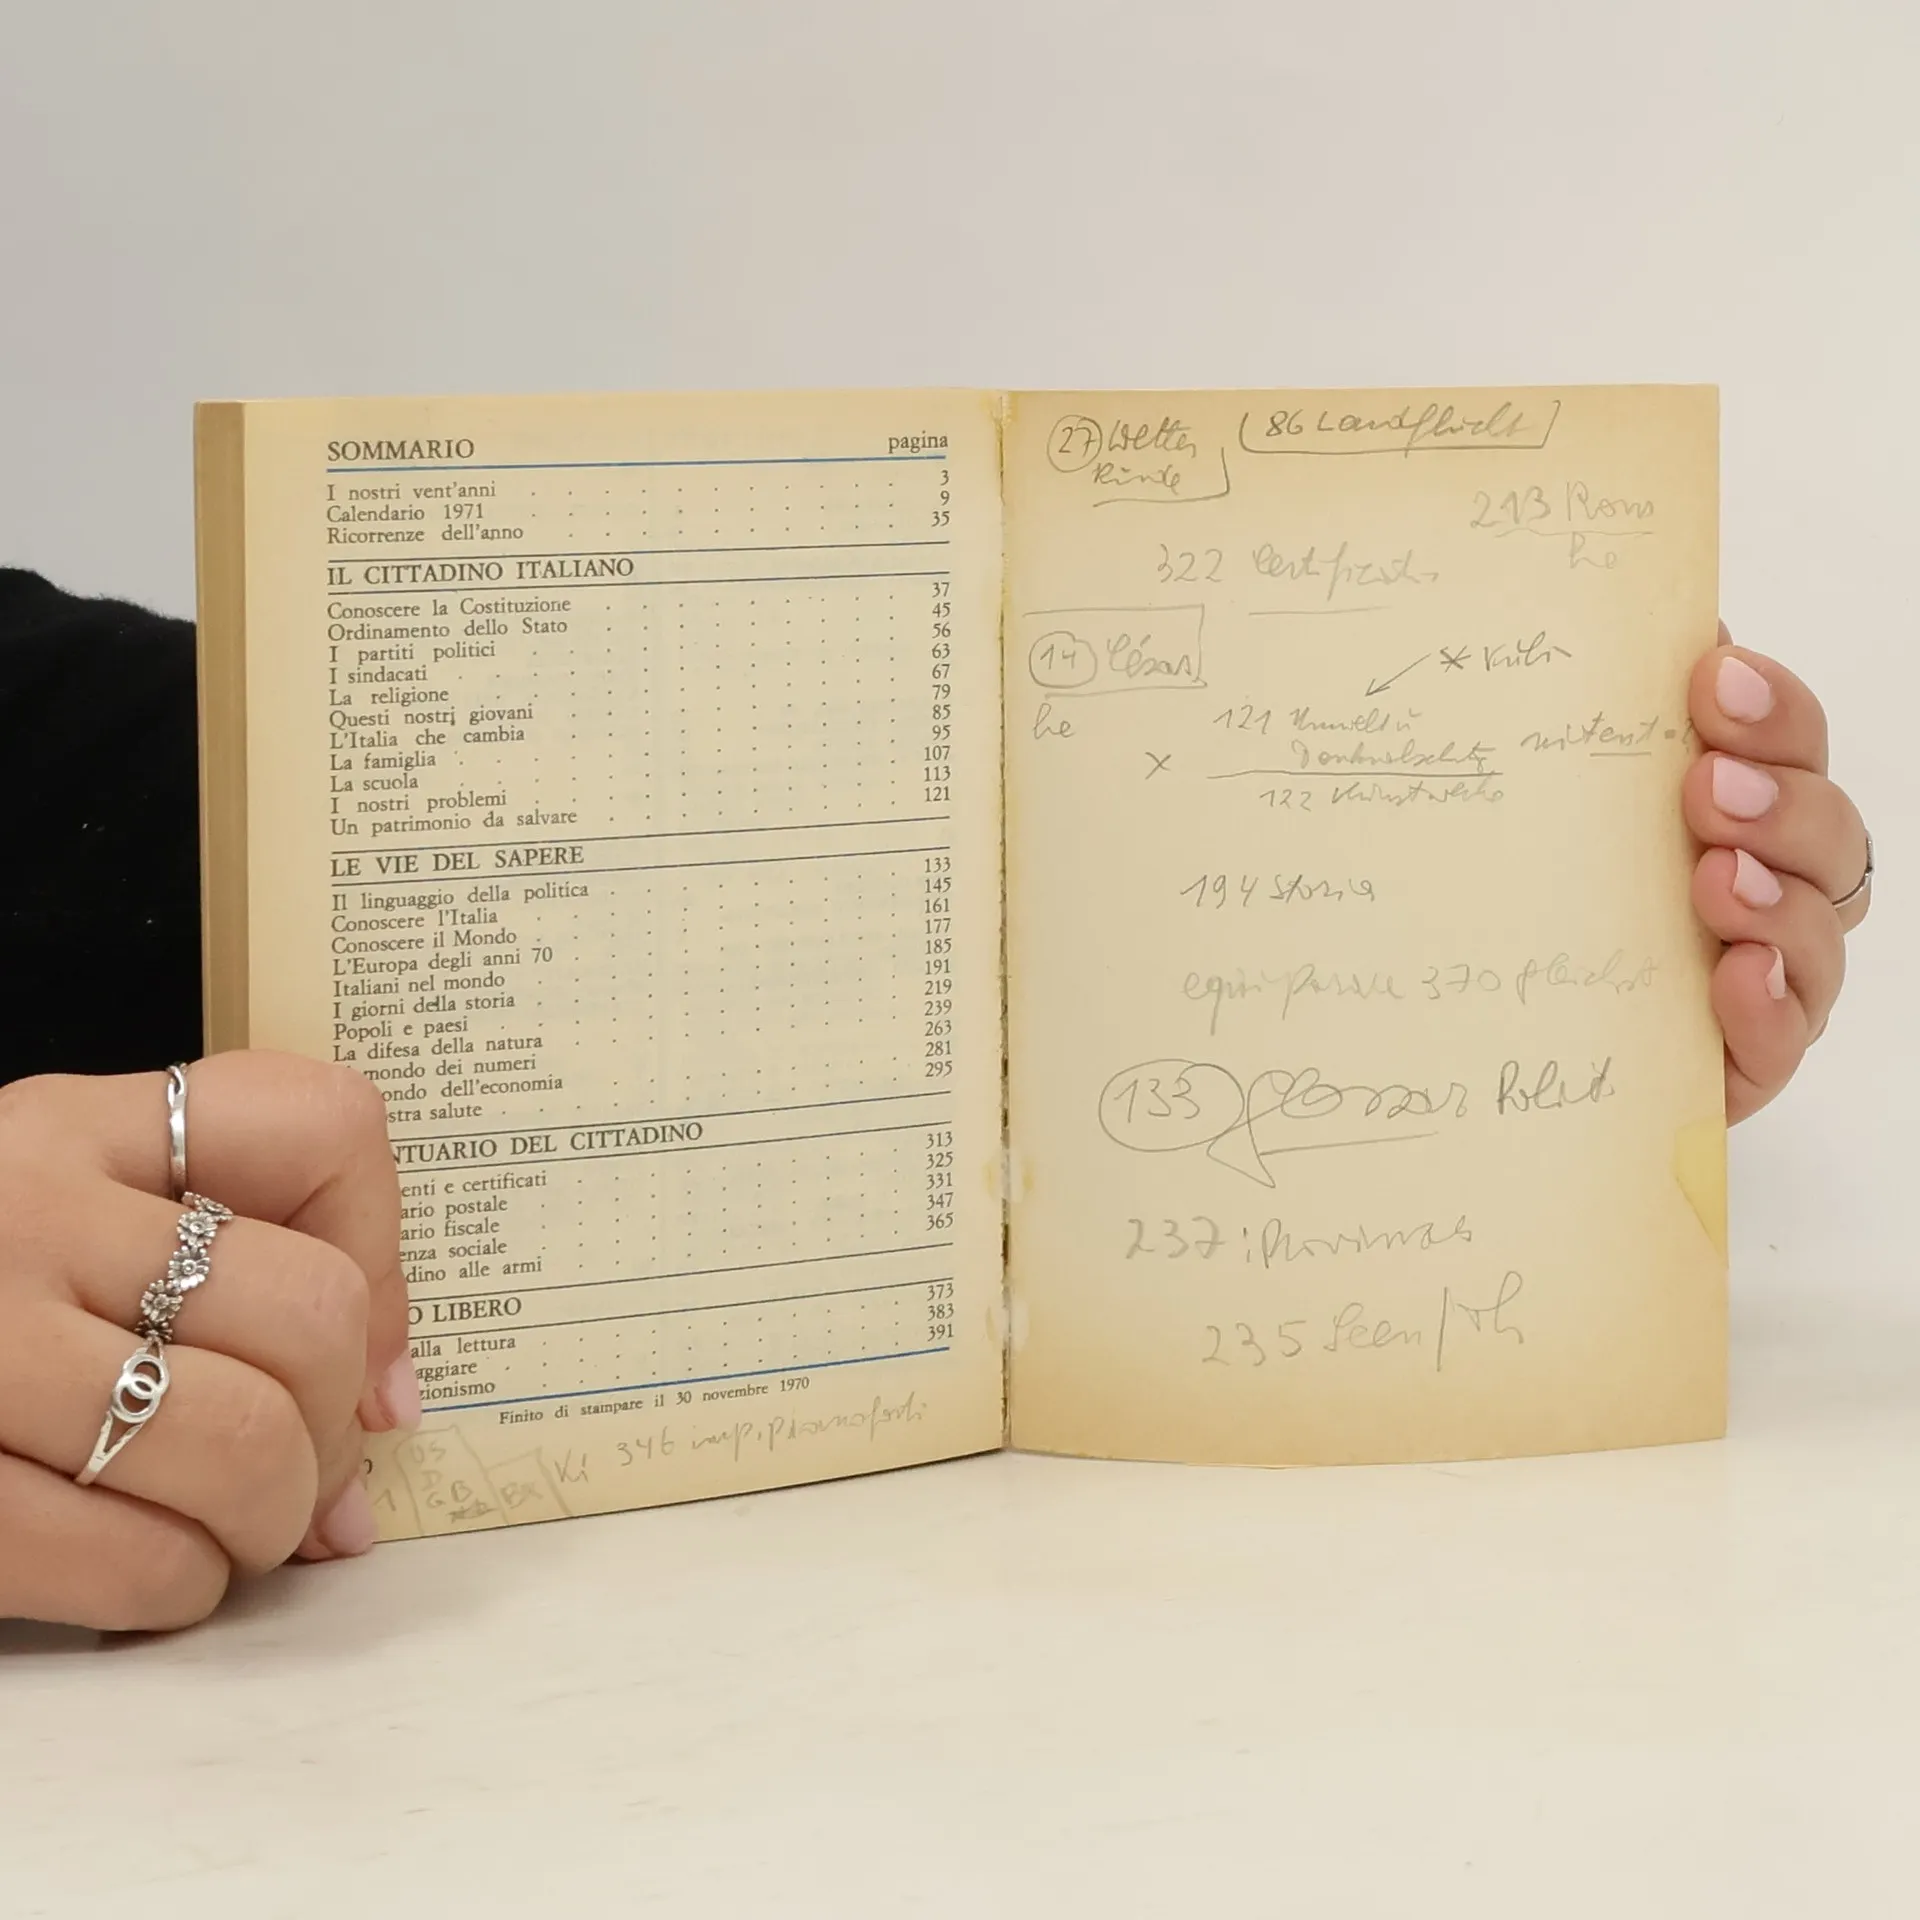 SOMMARIO pagina
I nostri vent'anni 3
Calendario 1971 9
Ricorrenze dell'anno 35
IL CITTADINO ITALIANO
Conoscere la Costituzione 37
Ordinamento dello Stato 45
I partiti politici 56
I sindacati 63
La religione 67
Questi nostri giovani 79
L'Italia che cambia 85
La famiglia 95
La scuola 107
I nostri problemi 113
Un patrimonio da salvare 121
LE VIE DEL SAPERE
Il linguaggio della politica 133
Conoscere l'Italia 145
Conoscere il Mondo 161
L'Europa degli anni 70 177
Italiani nel mondo 185
I giorni della storia 191
Popoli e paesi 219
La difesa della natura 239
mondo dei numeri 263
ondo dell'economia 281
stra salute 295
NTUARIO DEL CITTADINO
enti e certificati 313
ario postale 325
ario fiscale 331
enza sociale 347
dino alle armi 365
O LIBERO
alla lettura 373
aggiare 383
zionismo 391
Finito di stampare il 30 novembre 1970
346 imp.
US
D
GB
27 Wetter 86 Landflucht
213 Rom
322
14
he
121
122
194 storia
370
133 Glossar Polit
237:
235 Seen/